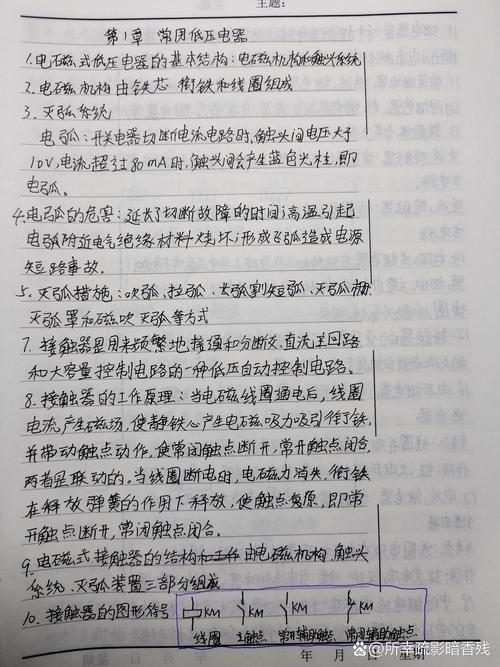 主题:
第1章 常用低压电器
1.电磁式低压电器的基本结构:电磁机构和触头系统
2.电磁机构由铁芯 衔铁和线圈组成
3.灭弧系统
电弧:开关电器切断电流电路时,触头间电压大于
10V,电流超过80mA时,触头间会产生蓝色光柱,即
电弧。
4.电弧的危害:延长了切断故障的时间;高温引起
电弧附近电气绝缘材料烧坏;形成飞弧造成电源
短路事故.
5.灭弧措施:吹弧、拉弧、长弧割短弧、灭弧栅
灭弧罩和磁吹灭弧等方式
7.接触器是用来频繁地接通和分断交、直流主回路
和大容量控制电路的一种低压自动控制电路。
8.接触器的工作原理:当电磁线圈通电后,线圈
电流产生磁场,使静铁心产生电磁吸力吸引衔铁,
并带动触点动作,使常闭触点断开,常开触点闭合,
两者是联动的,当线圈断电时,电磁力消失,衔铁
在释放弹簧的作用下释放,使触点复原,即常
开触点断开,常闭触点闭合.
9.电磁式接触器的结构和工作由电磁机构.触头
系统.灭弧装置三部分组成
10.接触器的图形符号
KM KM KM KM
线圈 主触点 常开辅助触点 常闭辅助触点
年 月 星期
@所幸疏影暗香残